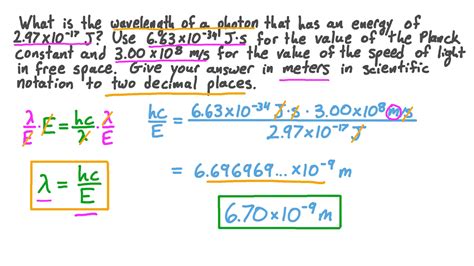 What is the wavelength of a photon that has an energy of
2.97×10⁻¹⁷ J? Use 6.63×10⁻³⁴ J·s for the value of the Planck
constant and 3.00×10⁸ m/s for the value of the speed of light
in free space. Give your answer in meters in scientific
notation to two decimal places.
λ/E · E = hc/λ · λ/E
λ = hc/E
hc/E = 6.63×10⁻³⁴ J·s · 3.00×10⁸ m/s / 2.97×10⁻¹⁷ J
= 6.696969...×10⁻⁹ m
6.70×10⁻⁹ m